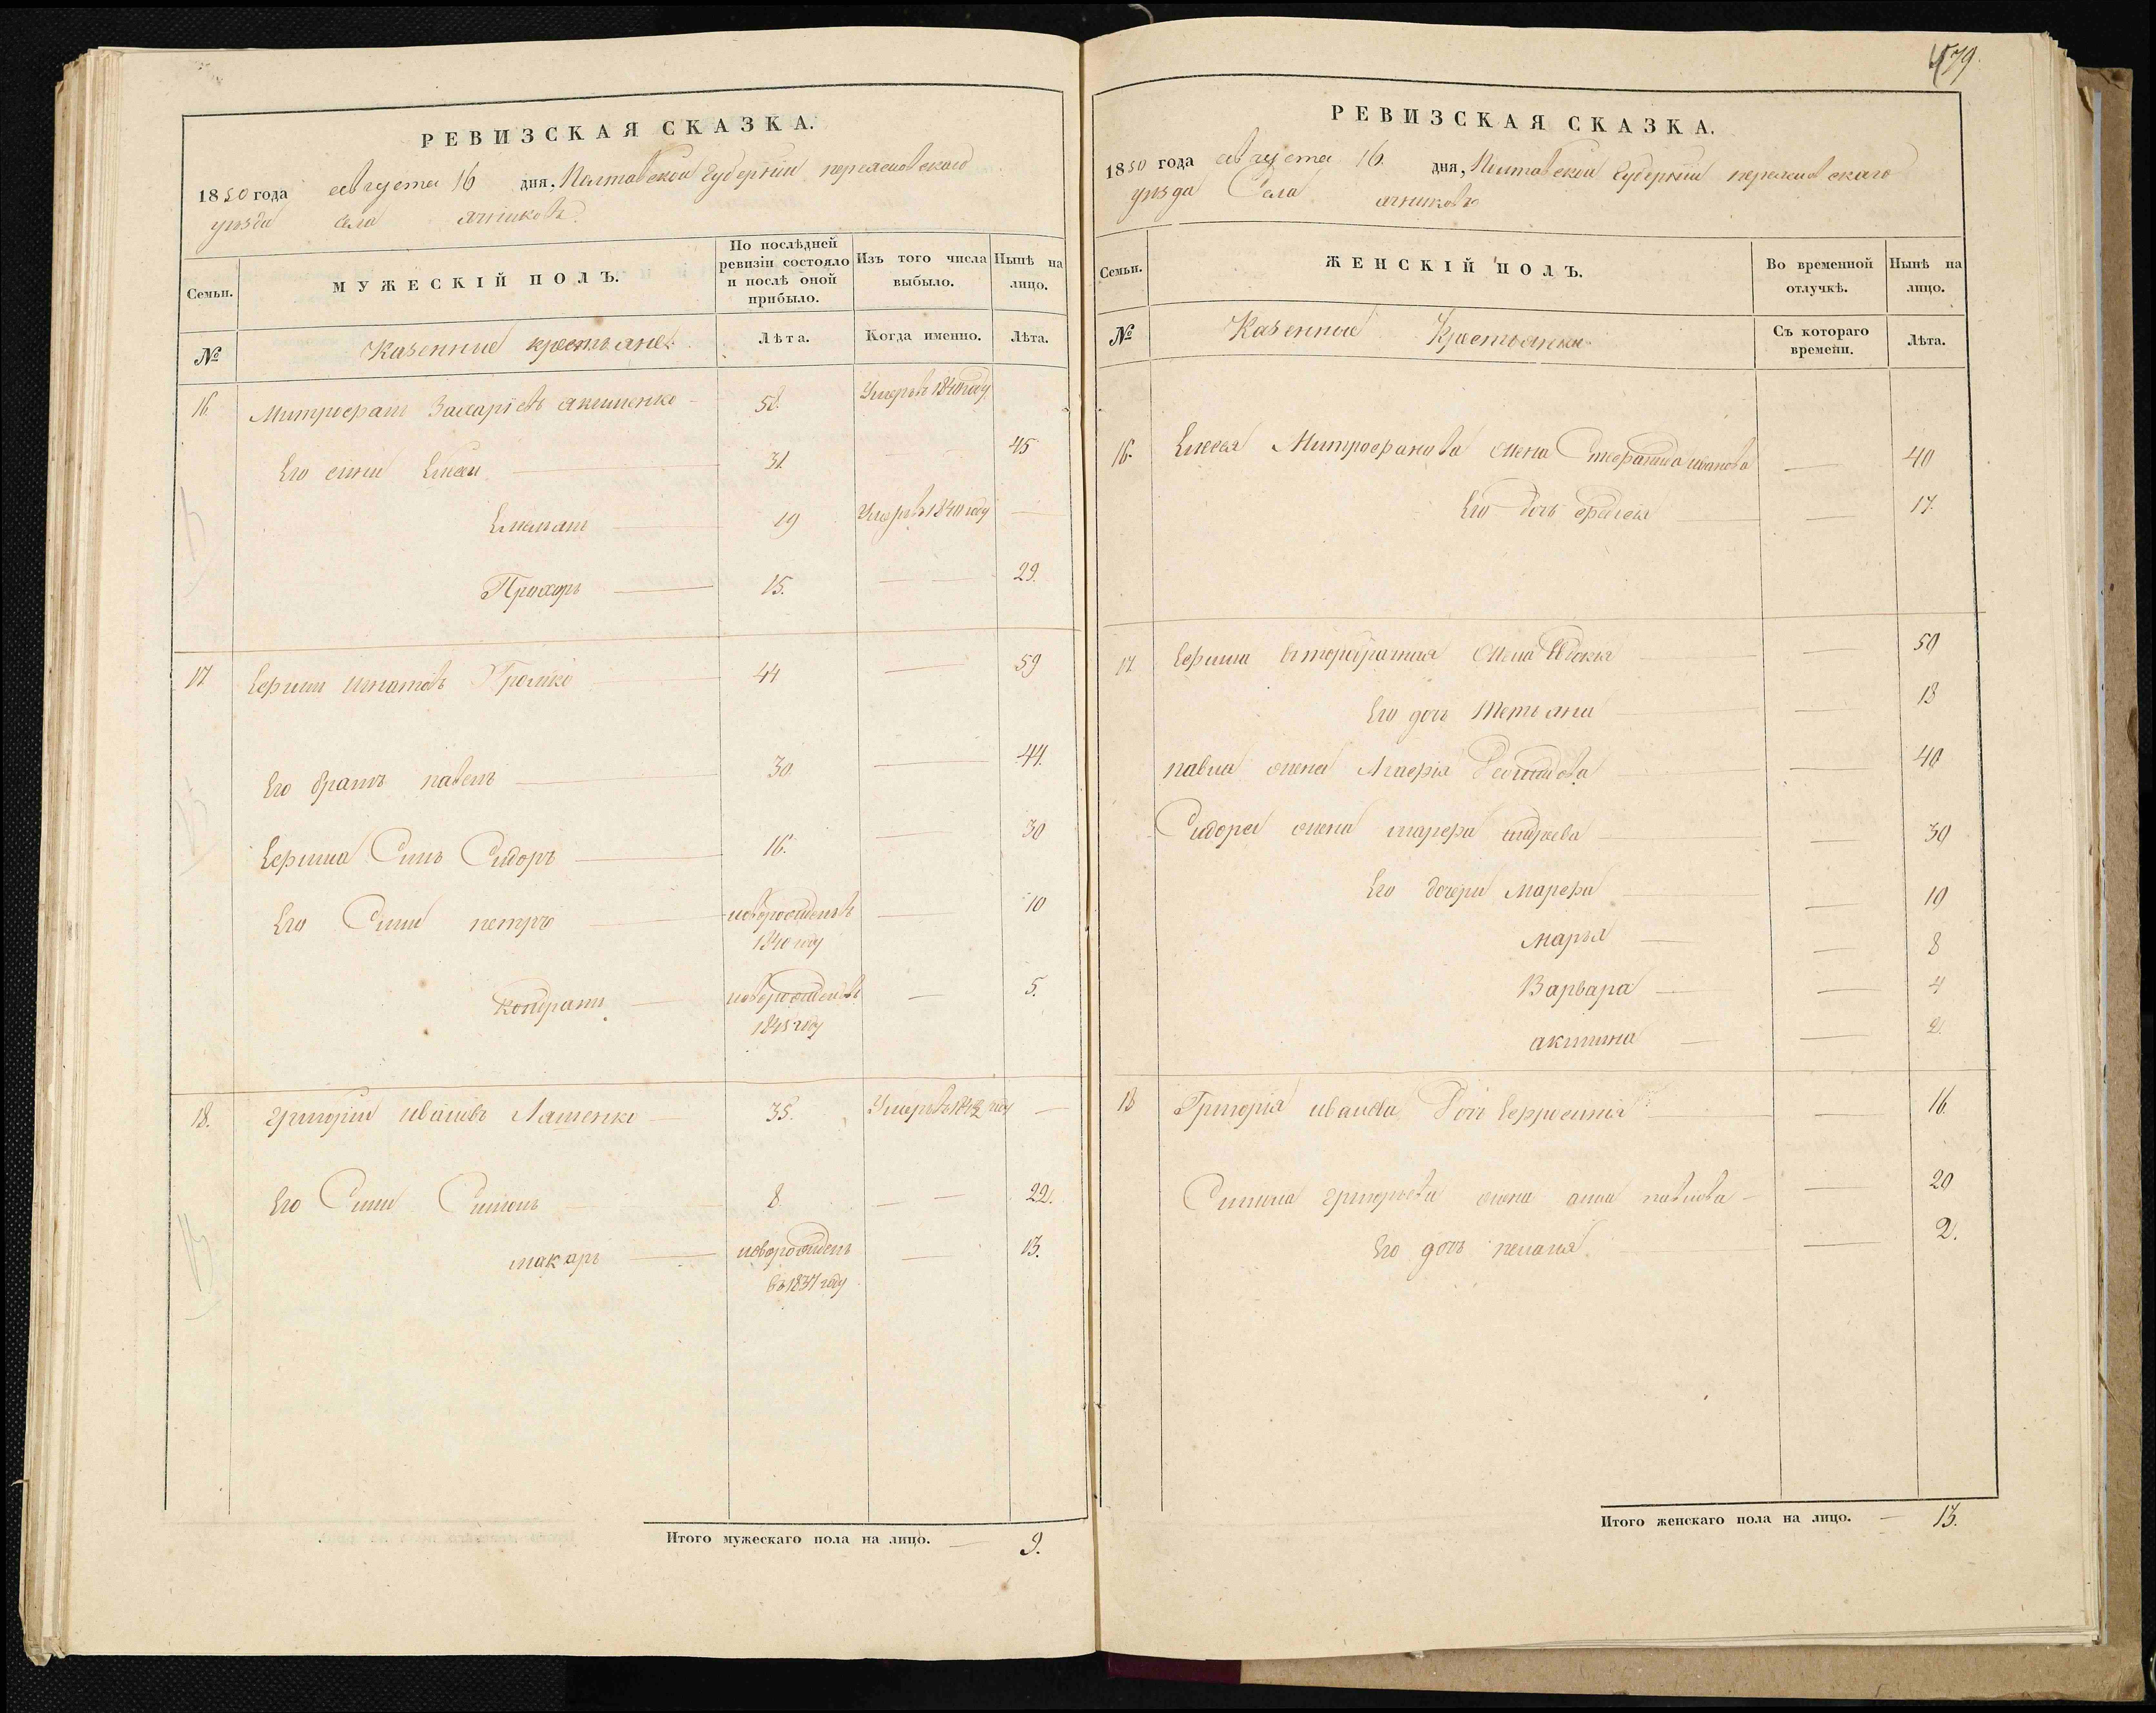 РЕВИЗСКАЯ СКАЗКА.
1850 года августа 16 дня, Полтавской губернии переяславского
уѣзда села
Семьи.
МУЖЕСКІЙ ПОЛЪ.
По послѣдней ревизіи состояло и послѣ оной прибыло.
Изъ того числа выбыло.
Нынѣ на лицо.
№
Казенные крестьяне
Лѣта.
Когда именно.
Лѣта.
16 Митрофанъ Захаріевъ 58. Умеръ въ 1840 году
Его сини Елисей 31 45
19 Умеръ въ 1840 году
Прохоръ 15. 29.
17 Ефимъ Игнатовъ 44 59
Его братъ павелъ 30 44.
Ефима Синъ Сидоръ 16. 30
Его Сини петръ новорожденъ въ 1840 году 10
Кондратъ новорожденъ въ 1845 году 5.
18. григорій ивановъ Ляшенко 35. Умеръ въ 1842 году
Его Сини Симонъ 8 22.
макаръ новорожденъ въ 1837 году 13.
Итого мужескаго пола на лицо. 9.
479.
РЕВИЗСКАЯ СКАЗКА.
1850 года августа 16. дня, Полтавской губерніи переяславскаго
уѣзда Села
Семьи.
ЖЕНСКІЙ ПОЛЪ.
Во временной отлучкѣ.
Нынѣ на лицо.
№
Казенные Крестьянки
Съ котораго времени.
Лѣта.
16. Елисея Митрофанова жена иванова 40
Его дочь 17.
17 Ефима второбрачная жена 50
Его дочь Тетьяна 18
павла жена Агафія 40
Сидора жена марфа андреева 30
Его дочери Марфа 10
марья 8
Варвара 4
акилина 2.
18 Григорія иванова Дочь Ефросинія 16.
Симона григорьева жена анна павлова 20
Его дочь пелагия 2.
Итого женскаго пола на лицо. 13.